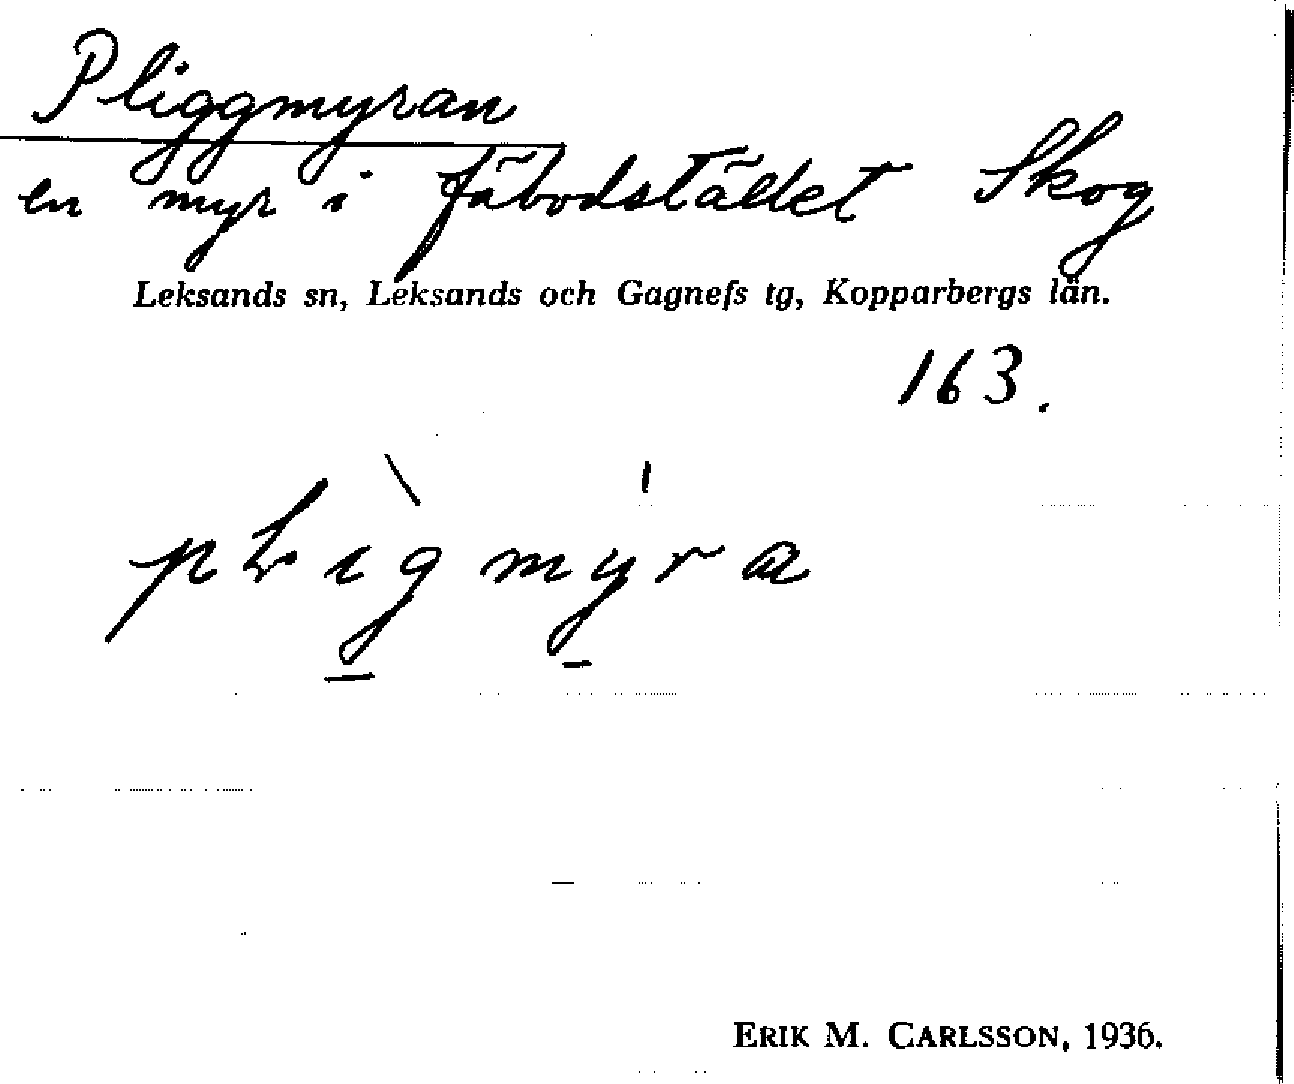 Pliggmyran
en myr i fäbodstället Skog
Leksands sn, Leksands och Gagnefs tg, Kopparbergs län.
163.
ERIK M. CARLSSON, 1936.